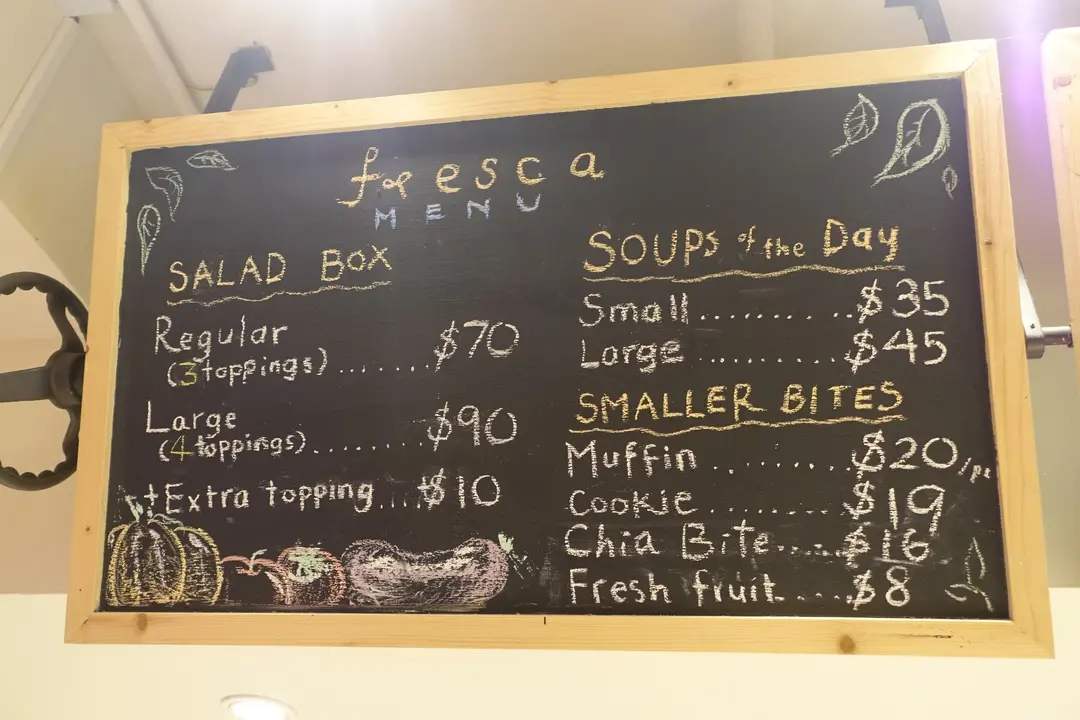 fresca
MENU
SALAD BOX
Regular
(3 toppings)........$70
Large
(4 toppings).......$90
+Extra topping....$10
SOUPs of the Day
Small...........$35
Large..........$45
SMALLER BITES
Muffin..........$20/pc
Cookie.........$19
Chia Bite......$16
Fresh fruit....$8